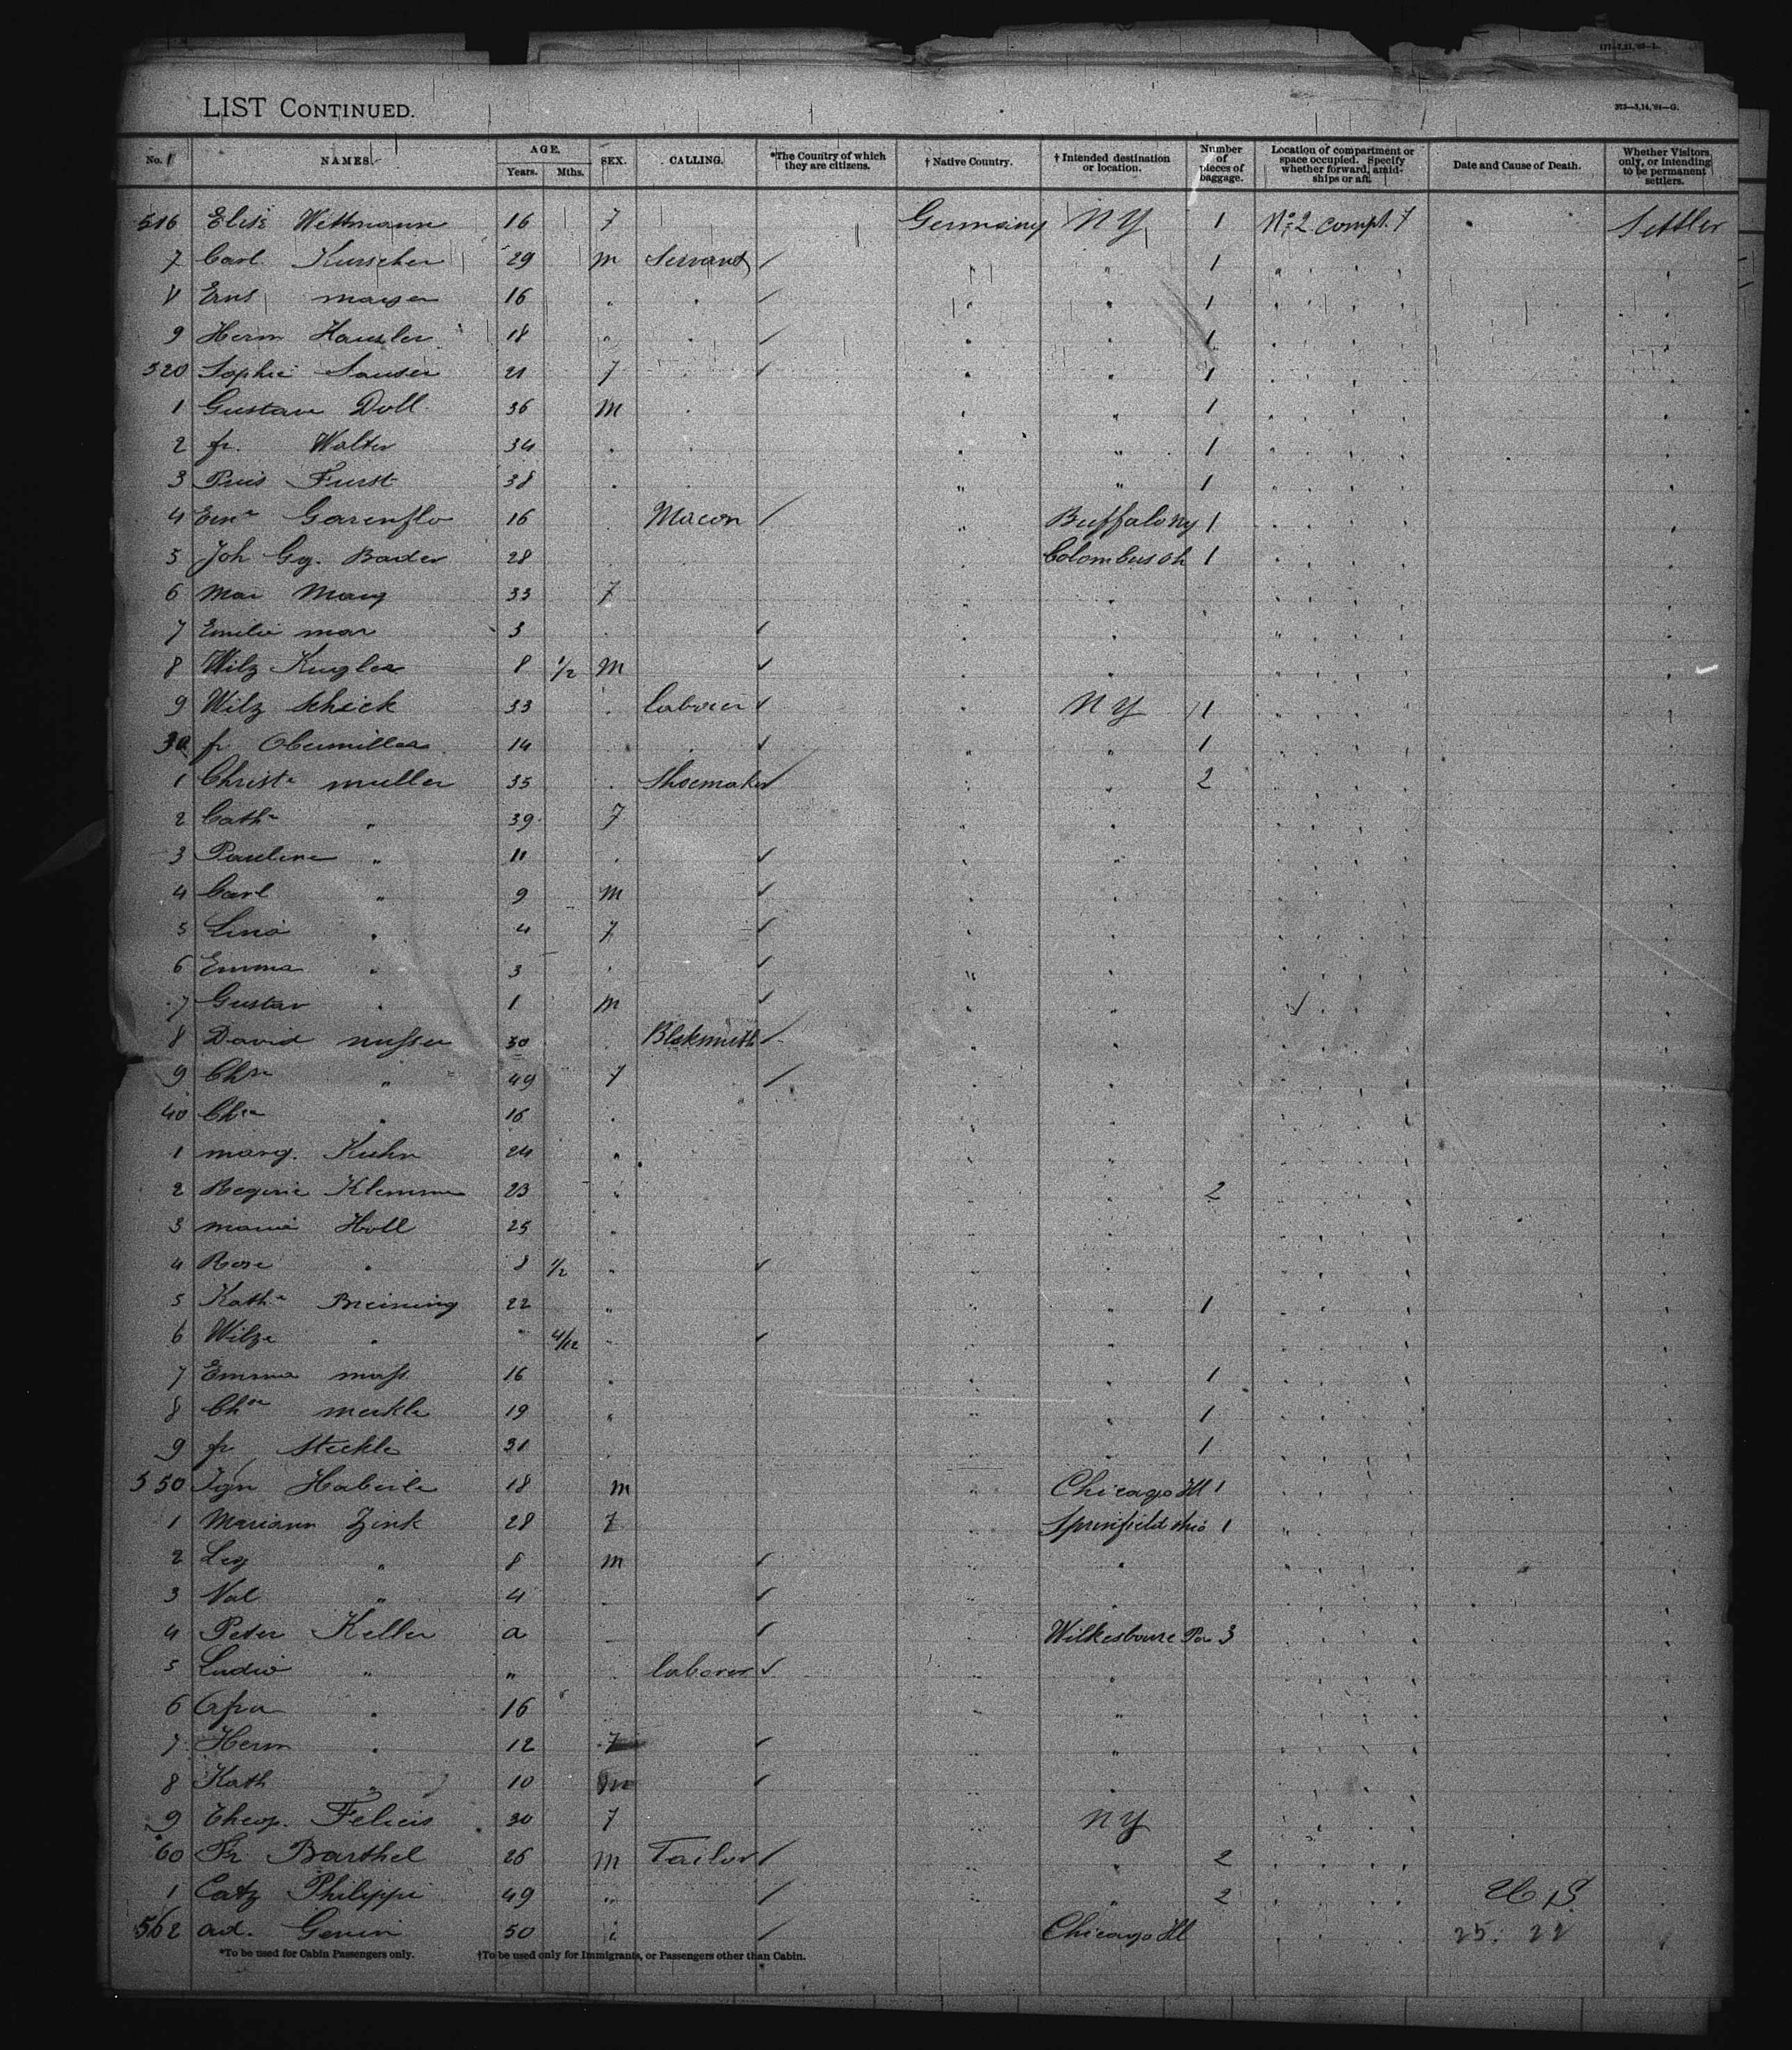 LIST CONTINUED.
177—7,21,'93—1.
373—3,14,'94—G.
No. NAMES. AGE. Years. Mths. SEX. CALLING. *The Country of which they are citizens. † Native Country. † Intended destination or location. Number of pieces of baggage. Location of compartment or space occupied. Specify whether forward, amidships or aft. Date and Cause of Death. Whether Visitors, only, or intending to be permanent settlers.
516 Elise Wettmann 16 f Germany NY 1 No 2 compt. f Settler
7 Carl Kurscher 29 m Servant " " 1
8 Erns mayer 16 " " " " 1
9 Herm Hausler 18 " " " " 1
520 Sophie Sauser 21 f " " " 1
1 Gustave Doll 36 m " " " 1
2 fr. Walter 34 " " " " 1
3 Pius Furst 38 " " " 1
4 Erna Garenflo 16 " Macon " Buffalo ny 1
5 Joh Gg. Bader 28 " " Colombus oh 1
6 Mar Marg 33 f " "
7 Emilie mar 3 " " "
8 Wilz Kugler 8 1/2 m " "
9 Wilz Schick 33 " laborer " NY 1
30 fr Obermiller 14 " " " " 1
1 Christn muller 35 " Shoemaker " " 2
2 Cathn " 39 f " "
3 Pauline " 11 " " "
4 Carl " 9 m " "
5 Lina " 4 f " "
6 Emma " 3 " " "
7 Gustav " 1 m " "
8 David nusser 30 " Blaksmith " "
9 Chrn " 49 f " "
40 Chrn " 16 " " "
1 marg. Kuhn 24 " " "
2 Regine Klemm 23 " " " 2
3 marie Holl 25 " " "
4 Rose " 8 1/2 " " "
5 Kathn Breining 22 " " " 1
6 Wilze " " 4/12 " " "
7 Emma mast 16 " " " 1
8 Chrn merkle 19 " " " 1
9 fr Steckle 31 " " " 1
550 Ign Haberle 18 m " Chicago Ill 1
1 Mariann Zink 28 f " Sprinfield ohio 1
2 Leg " 8 m " "
3 Val " 4 " " "
4 Peter Keller a " " Wilkesbourre Pa 3
5 Ludw " " " laborer " "
6 Afra " 16 " " "
7 Herm " 12 f " "
8 Kath " 10 m " "
9 Theop. Felicis 30 f " NY
60 Fr Barthel 26 m Tailor " " 2
1 Catz Philippi 49 " " " 2
562 ad. Genin 50 " " Chicago Ill 25. 22
*To be used for Cabin Passengers only. †To be used only for Immigrants, or Passengers other than Cabin.